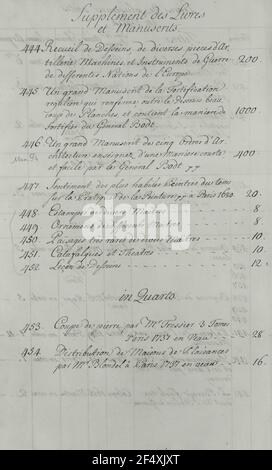 Supplement des Livres
et Manuscrits
444. Recueil de Desseins, de diverses pieces d'Ar
tillerie Machines et Instruments de Guerre 200
de differentes Nations de l'Europe
445 Un grand Manuscrit de la Fortification
reguliere qui renferme outre le Discours beau
coup de Planches et contient la maniere de 1000
Fortifier du General Bodt
446 Un grand Manuscrit des cinq Ordres d'Ar
chitecture enseignez d'une Maniere courte 400
et facile par le General Bodt
447 Sentiment des plus habiles Peintres du tems
sur la Pratique de la Peinture a Paris 1680. 20
448 Estampes de divers Maitres 8
449 Ornements de Maitres 8
450 Paisages tres rares 10
451. Catafalques et Theatres 10
452 Leçon de Desseins 12
in Quarto
453. Coupe de pierre par Mr Fressier 3 Tomes
Paris 1737 en Veau 28
454. Distribution de Maisons de Plaisances
par Mr Blondel à Paris 1737 en veau 16
alamy
Image ID: 2F4XJXT
www.alamy.com